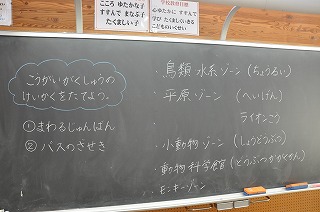 こころ ゆたかな子
すすんで まなぶ子
たくましい 子
学校教育目標
心ゆたかに すすんで
学び たくましく生きる
こどものいくせい
こうがいがくしゅうの
けいかくをたてよう。
①まわるじゅんばん
②バスのざせき
・鳥類 水系ゾーン(ちょうるい)
・平原ゾーン (へいげん)
ライオンこう
・小動物ゾーン(しょうどうぶつ)
・動物科学館(どうぶつかがくかん)
・モンキーゾーン